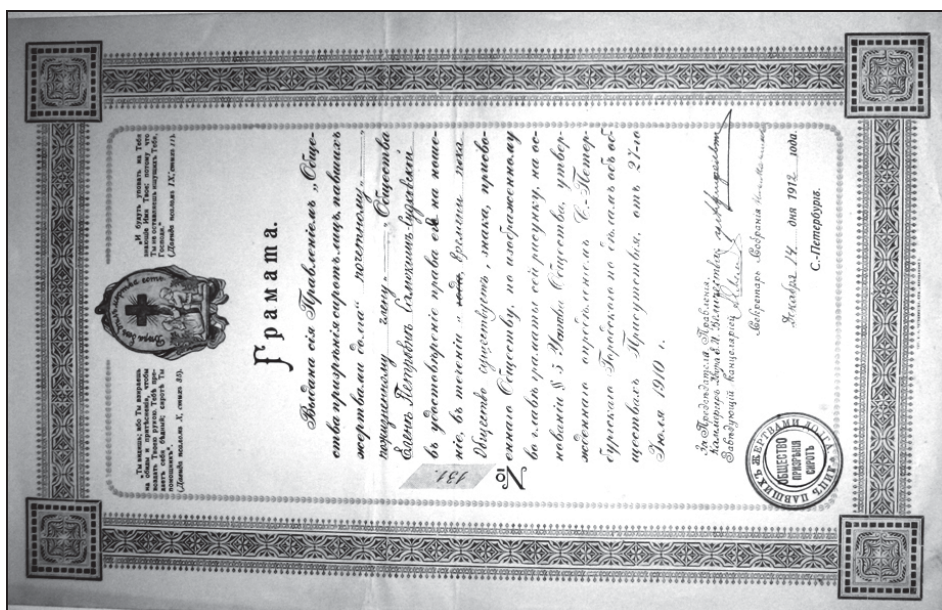 „Ты видишь; ибо Ты взираешь
на обиды и притѣсненія, чтобы
воздать Твоею рукою. Тебѣ пре-
даетъ себя бѣдный; сиротѣ Ты
помощникъ“.
(Давида псаломъ X, стихъ 35).
„И будутъ уповать на Тебя
знающіе Имя Твое; потому что
Ты не оставляешь ищущихъ Тебя,
Господи.“
(Давида псаломъ IX, стихъ 11).
Грамата.
Выдана сія Правленіемъ „Обще-
ства призрѣнія сиротъ лицъ, павшихъ
жертвами долга“ почетному
пожизненному члену Общества
Еленѣ Петровнѣ
въ удостовѣреніе права ея на ноше-
ніе, въ теченіи времени пока
Общество существуетъ, знака, присво-
еннаго Обществу, по изображенному
во главѣ граматы сей рисунку, на ос-
нованіи § 5 Устава Общества, утвер-
жденнаго опредѣленіемъ С.-Петер-
бургскаго Городского по дѣламъ объ об-
ществахъ Присутствія, отъ 27-го
Іюля 1910 г.
№ 131.
За Предсѣдателя Правленія,
Камергеръ Двора Е.И. Величества
Завѣдующій Канцеляріей
Секретарь Собранія
Декабря 14 дня 1912 года.
С.-Петербургъ.
ЛИЦЪ ПАВШИХЪ ЖЕРТВАМИ ДОЛГА
ОБЩЕСТВО
ПРИЗРѢНІЯ
СИРОТЪ